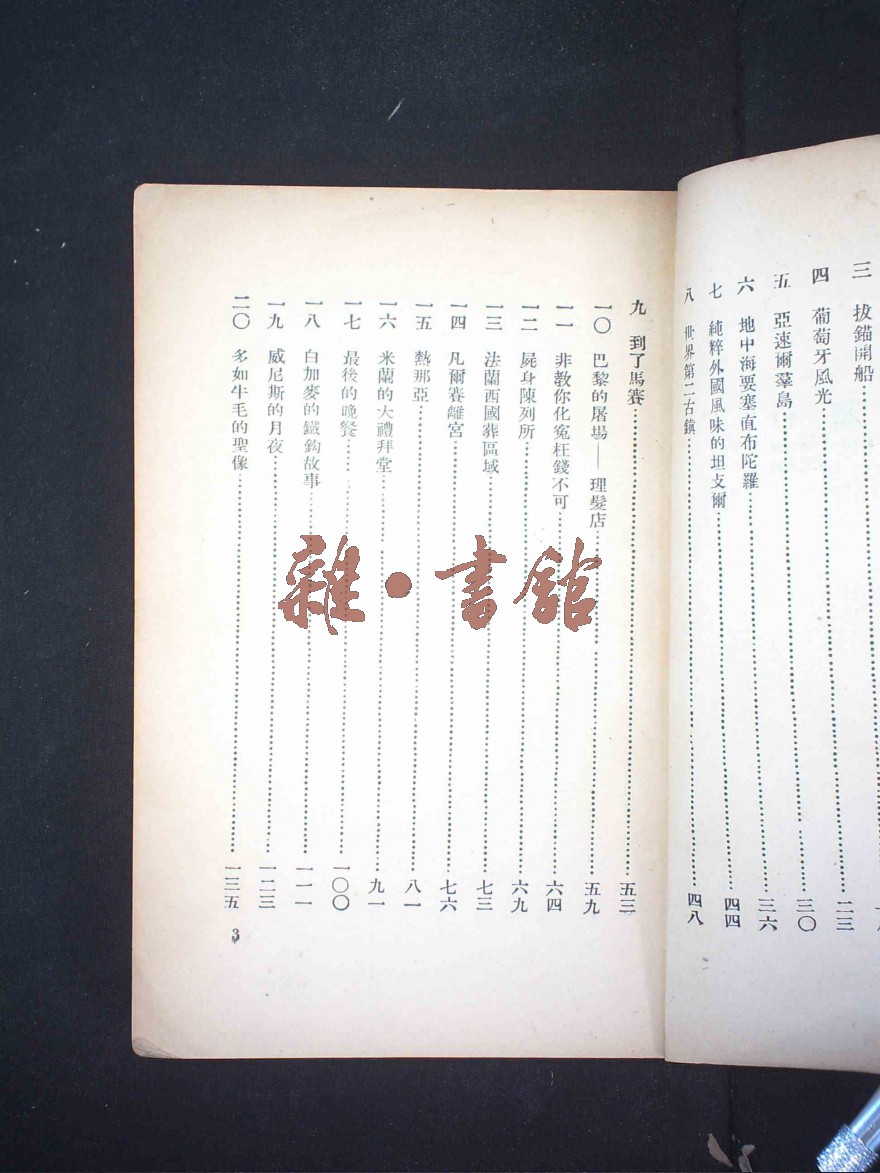 三 拔錨開船……二三
四 葡萄牙風光……三〇
五 亞速爾羣島……三六
六 地中海要塞直布陀羅……四四
七 純粹外國風味的坦支爾……四八
八 世界第二古鎮
九 到了馬賽……五三
一〇 巴黎的屠場——理髮店……五九
一一 非教你化冤枉錢不可……六四
一二 屍身陳列所……六九
一三 法蘭西國葬區域……七三
一四 凡爾賽離宮……七六
一五 熱那亞……八一
一六 米蘭的大禮拜堂……九一
一七 最後的晚餐……一〇〇
一八 白加麥的鐵鈎故事……一一一
一九 威尼斯的月夜……一二三
二〇 多如牛毛的聖像……一三五
3
雜·書館